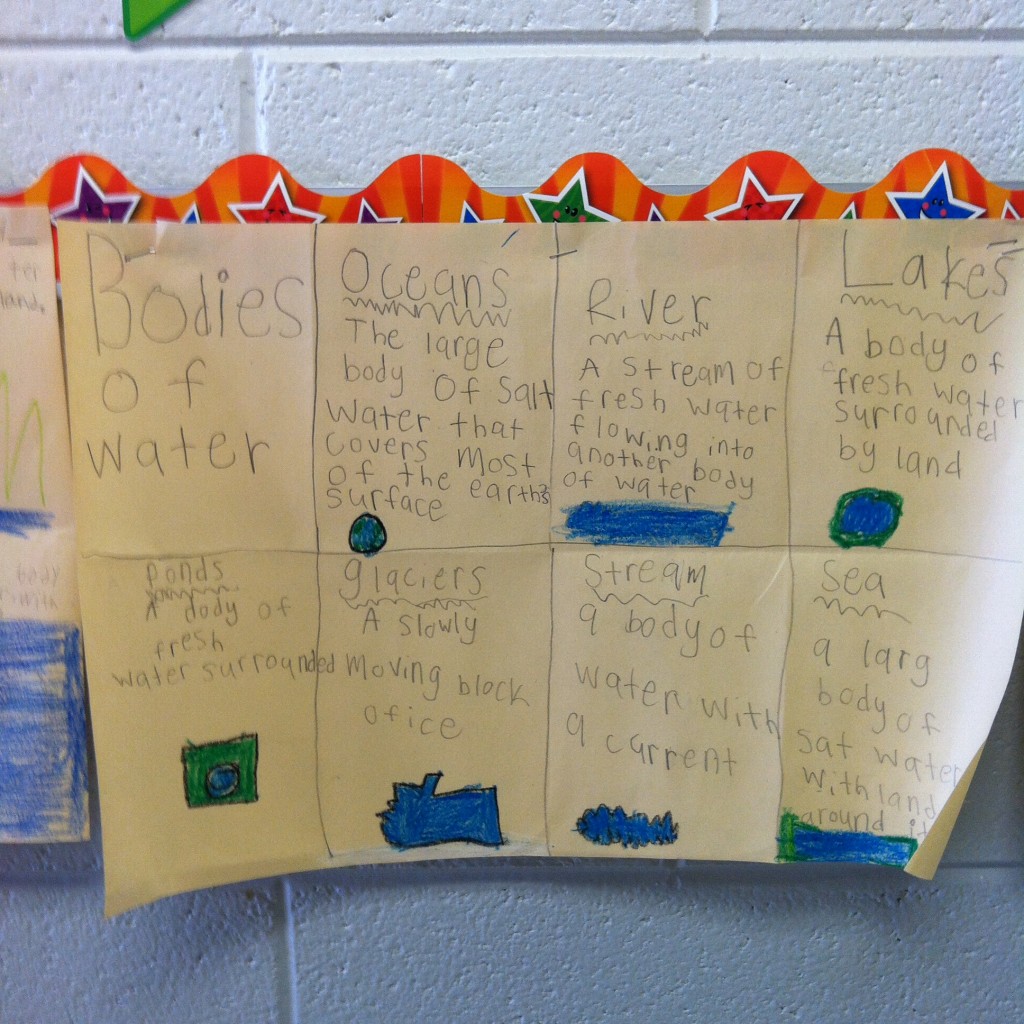 Bodies
of
water
Oceans
The large
body of Salt
water that
covers most
of the earths
surface
River
A Stream of
fresh water
flowing into
another body
of water
Lakes
A body of
fresh water
surrounded
by land
Ponds
A dody of
fresh
water surrounded
glaciers
A slowly
Moving block
of ice
Stream
a body of
water with
a current
Sea
a larg
body of
sat water
with land
around it
ter
land.
body
with